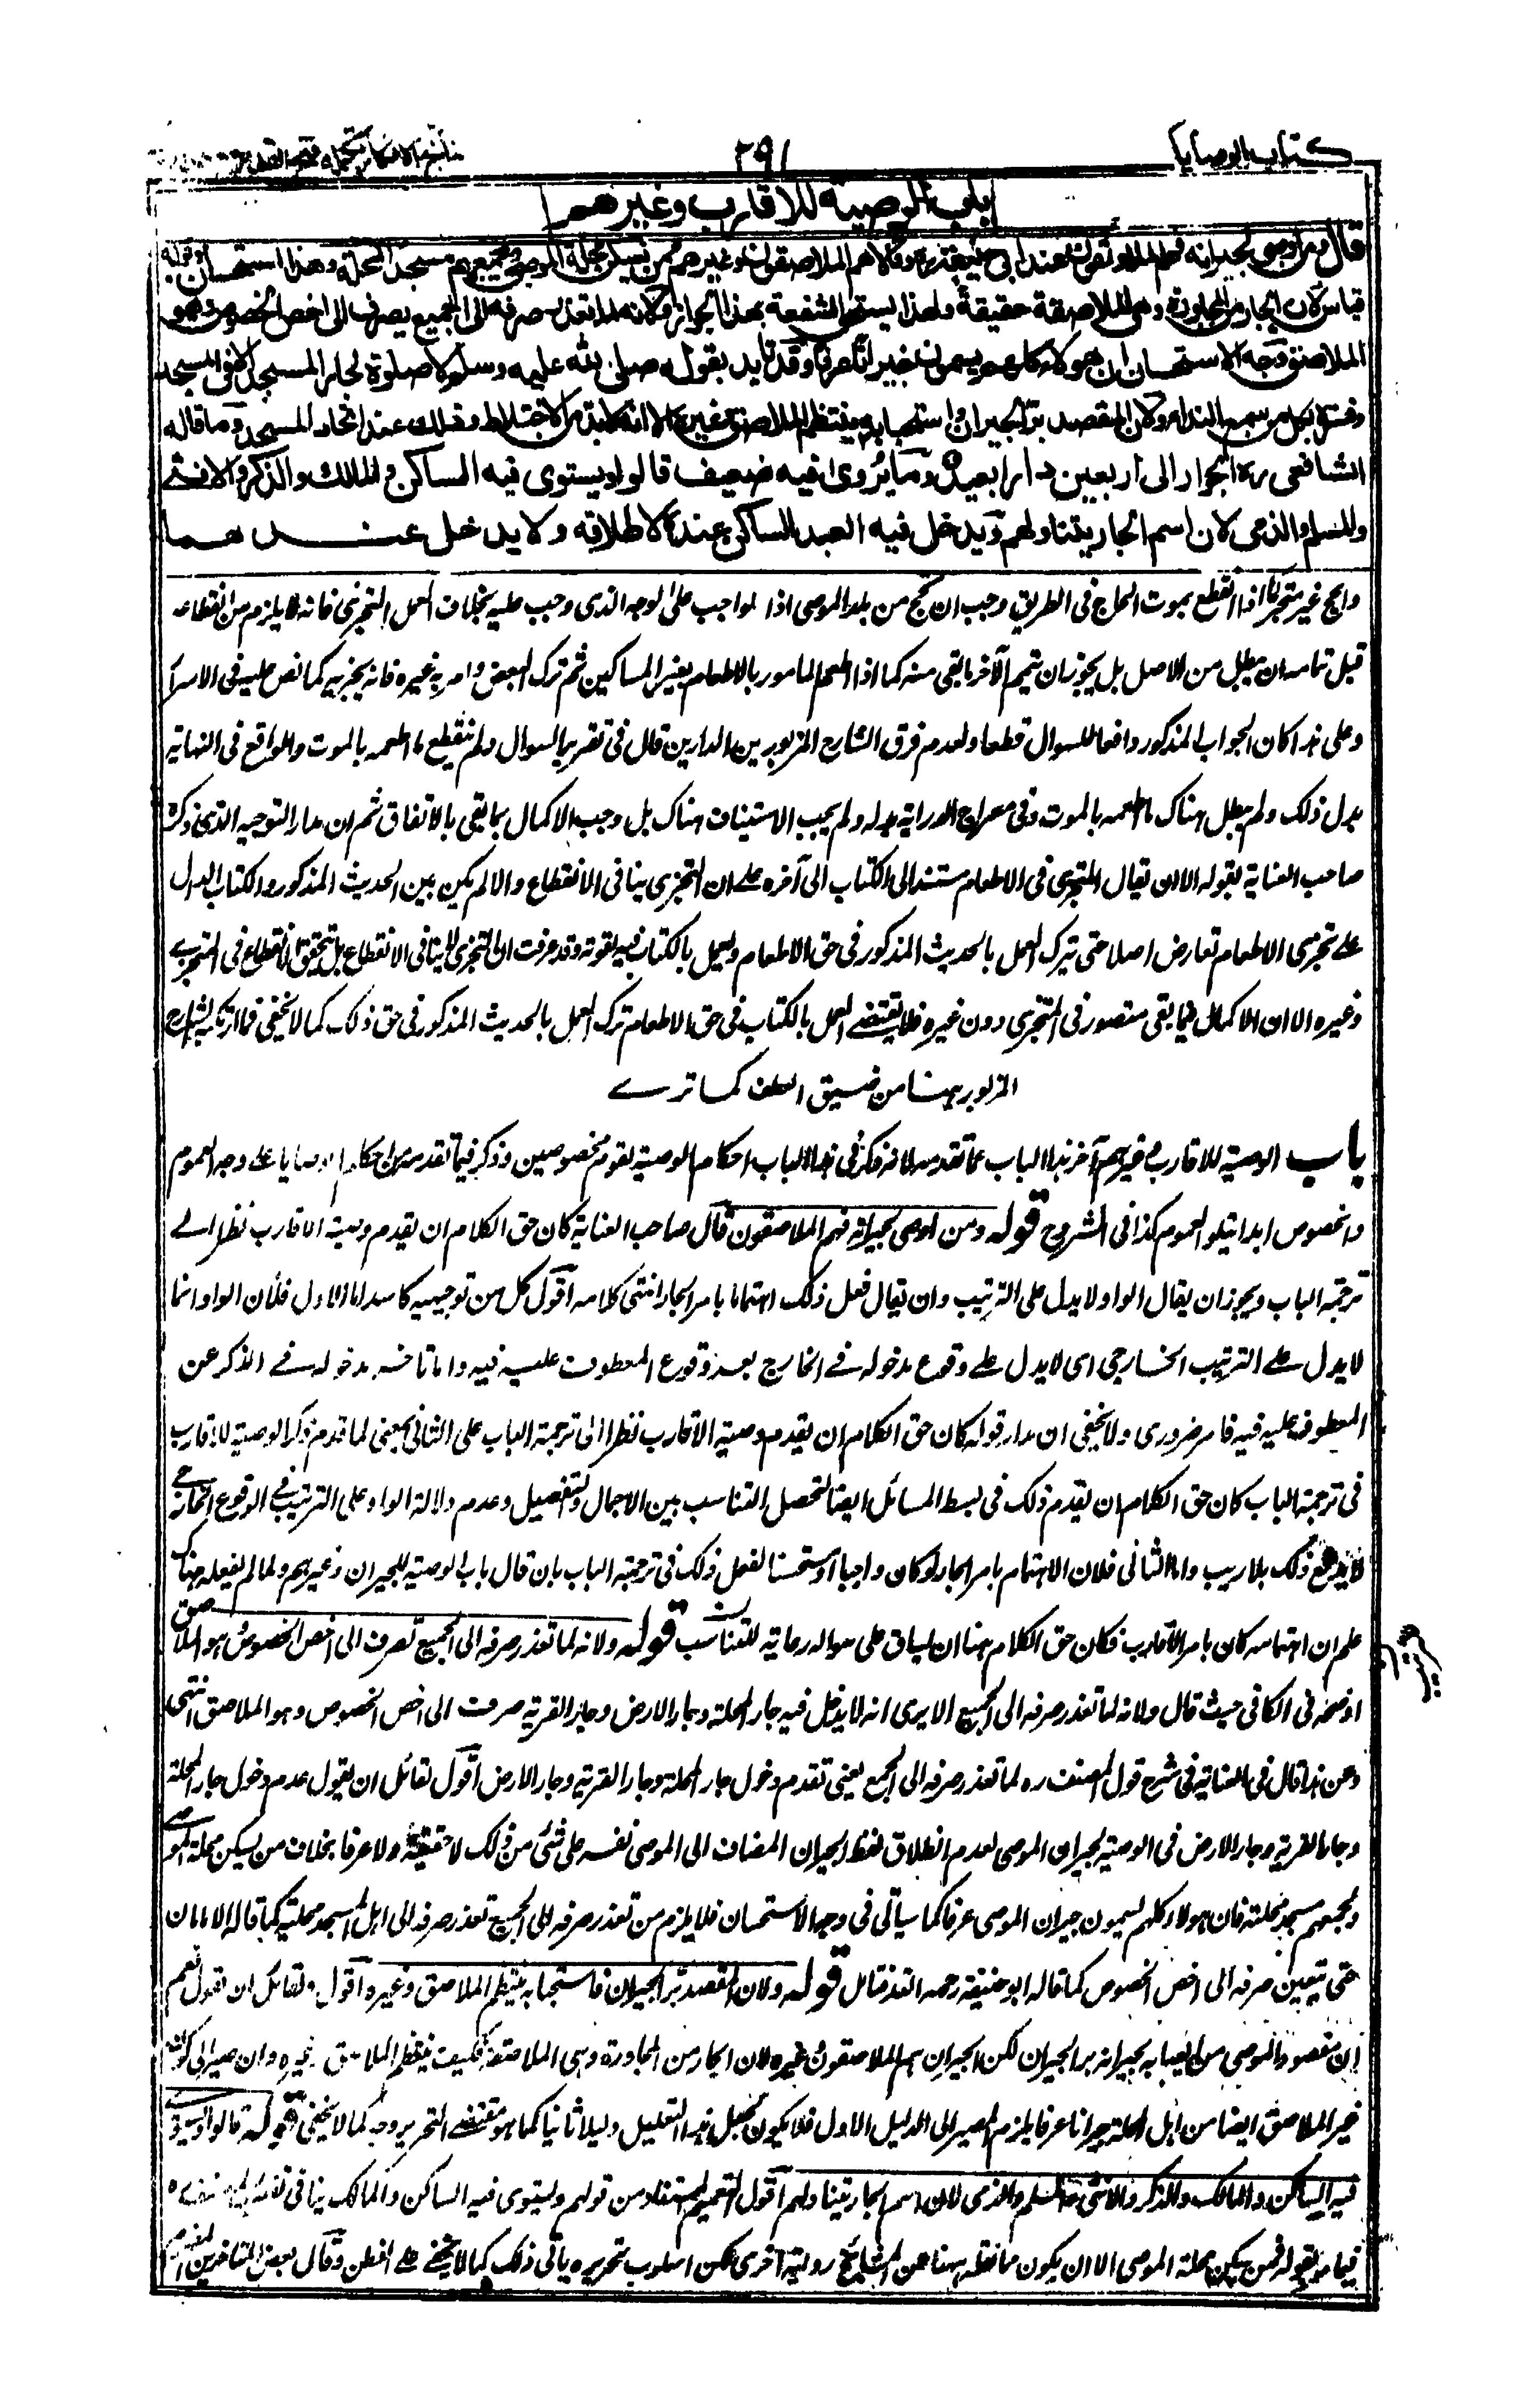 كتاب الوصايا
٢٩١
نتائج الافكار تكملة فتح القدير
باب الوصية للاقارب وغيرهم
قال ومن اوصى لجيرانه فهم الملاصقون عند ابى حنيفة ره وقالا هم الملاصقون وغيرهم ممن يسكن محلة الموصى ويجمعهم مسجد المحلة وهذا استحسان وقوله
قياس لان الجار من المجاورة وهى الملاصقة حقيقة ولهذا يستحق الشفعة بهذا الجوار ولانه لما تعذر صرفه الى الجميع يصرف الى اخص الخصوص وهو
الملاصق وجه الاستحسان ان هؤلاء كلهم يسمون جيرانا عرفا وقد تايد بقوله صلى الله عليه وسلم لا صلوة لجار المسجد الا فى المسجد
وفسره بكل من سمع النداء ولان المقصد بر الجيران واستحبابه ينتظم الملاصق وغيره الا انه لابد من الاختلاط وذلك عند اتحاد المسجد وما قاله
الشافعى ره الجوار الى اربعين دارا بعيد وما يروى فيه ضعيف قالوا ويستوى فيه الساكن والمالك والذكر والانثى
والمسلم والذمى لان اسم الجار يتناولهم ويدخل فيه العبد الساكن عنده لاطلاقه ولا يدخل عندهما
والحج غير متجز فاذا انقطع بموت الحاج فى الطريق وجب ان يحج من بلد الموصى اذا الواجب على الوجه الذى وجب عليه بخلاف العمل المتجزى فانه لا يلزم من انقطاعه
قبل تمامه ان يبطل من الاصل بل يجوز ان يتمم الآخر ما بقى منه كما اذا اطعم المامور بالاطعام بعض المساكين ثم ترك البعض وامر به غيره فانه يجزيه كما نص عليه فى الاسرار
وعلى هذا كان الجواب المذكور دافعا للسوال قطعا ولعدم فرق الشارح المزبور بين المدارين قال فى تقرير السوال ولم ينقطع ما اطعمه بالموت والواقع فى النهاية
بدل ذلك ولم يبطل هناك ما اطعمه بالموت وفى معراج الدراية بدله ولم يجب الاستيناف هناك بل وجب الاكمال بما بقى بالاتفاق ثم ان مدار التوجيه الذى ذكره
صاحب العناية بقوله الا ان يقال التجزى فى الاطعام مستند الى الكتاب الى آخره على ان التجزى ينافى الانقطاع والا لم يكن بين الحديث المذكور والكتاب الدال
على تجزى الاطعام تعارض اصلا حتى يترك العمل بالحديث المذكور فى حق الاطعام ويعمل بالكتاب فيه لقوته وقد عرفت ان التجزى لا ينافى الانقطاع بل يتحقق الانقطاع فى المتجزى
وغيره الا ان الاكمال فيما بقى متصور فى المتجزى دون غيره فلا يقتضى العمل بالكتاب فى حق الاطعام ترك العمل بالحديث المذكور فى حق ذلك كما لا يخفى فما ارتكبه الشارح
المزبور ههنا من ضيق العطن كما ترى
باب الوصية للاقارب وغيرهم آخر هذا الباب عما تقدمه لانه ذكر فى هذا الباب احكام الوصية لقوم مخصوصين وذكر فيما تقدمه احكام الوصايا على وجه العموم
والخصوص ابدا يتلو العموم كذا فى الشروح قوله ومن اوصى لجيرانه فهم الملاصقون قال صاحب العناية كان حق الكلام ان يقدم وصية الاقارب نظرا الى
ترجمة الباب ويجوز ان يقال الواو لا يدل على الترتيب وان يقال فعل ذلك اهتماما بامر الجار انتهى كلامه اقول كل من توجيهيه كاسد اما الاول فلان الواو انما
لا يدل على الترتيب الخارجى اى لا يدل على وقوع مدخوله فى الخارج بعد وقوع المعطوف عليه فيه واما تاخر مدخوله فى الذكر عن
المعطوف عليه فيه فامر ضرورى ولا يخفى ان مدار قوله كان حق الكلام ان يقدم وصية الاقارب نظرا الى ترجمة الباب على الثانى يعنى لما قدم ذكر الوصية للاقارب
فى ترجمة الباب كان حق الكلام ان يقدم ذلك فى بسط المسائل ايضا لتحصل التناسب بين الاجمال والتفصيل وعدم دلالة الواو على الترتيب فى الوقوع الخارجى
لا يدفع ذلك بلا ريب واما الثانى فلان الاهتمام بامر الجار لو كان واجبا او مستحسنا لفعل ذلك فى ترجمة الباب بان قال باب الوصية للجيران وغيرهم ولما لم يفعله هناك
علم ان اهتمامه كان بامر الاقارب فكان حق الكلام ههنا ان يساق على منواله رعاية للتناسب قوله ولانه لما تعذر صرفه الى الجميع تصرف الى اخص الخصوص وهو الملاصق
اوضحه فى الكافى حيث قال ولانه لما تعذر صرفه الى الجميع الا يرى انه لا يدخل فيه جار المحلة وجار الارض وجار القرية صرفت الى اخص الخصوص وهو الملاصق انتهى
وعن هذا قال فى العناية فى شرح قول المصنف ره لما تعذر صرفه الى الجميع يعنى تقدم دخول جار المحلة وجار القرية وجار الارض اقول لقائل ان يقول عدم دخول جار المحلة
وجار القرية وجار الارض فى الوصية لجيران الموصى لعدم انطلاق لفظ الجيران المضاف الى الموصى نفسه على شئ من ذلك لا حقيقة ولا عرفا بخلاف من يسكن محلة الموصى
ويجمعهم مسجد محلته فان هؤلاء كلهم يسمون جيران الموصى عرفا كما سياتى فى وجه الاستحسان فلا يلزم من تعذر صرفه الى الجميع تعذر صرفه الى اهل مسجد محلته كما قاله الامامان
حتى يتعين صرفه الى اخص الخصوص كما قاله ابو حنيفة رحمه الله فتامل قوله ولان المقصد بر الجيران فاستحبابه ينتظم الملاصق وغيره اقول ولقائل ان يقول نعم
ان مقصود الموصى من ايصائه لجيرانه بر الجيران لكن الجيران هم الملاصقون لا غيره لان الجار من المجاورة وهى الملاصقة فكيف ينتظم الملاصق وغيره وان صير الى كون
غير الملاصق ايضا من اهل المحلة جيرانا عرفا يلزم المصير الى الدليل الاول فلا يكون لجعل هذا التعليل دليلا ثانيا كما هو مقتضى التحرير وجه كما لا يخفى قوله قالوا ويستوى
فيه الساكن والمالك والذكر والانثى والمسلم والذمى لان اسم الجار يتناولهم اقول التعميم المستفاد من قولهم ويستوى فيه الساكن والمالك ينافى
فيما مر بقوله ممن يسكن محلة الموصى الا ان يكون ما نقله ههنا عن المشايخ رواية اخرى لكن اسلوب تحريره يأبى ذلك كما لا يخفى على الفطن وقال بعض المتاخرين